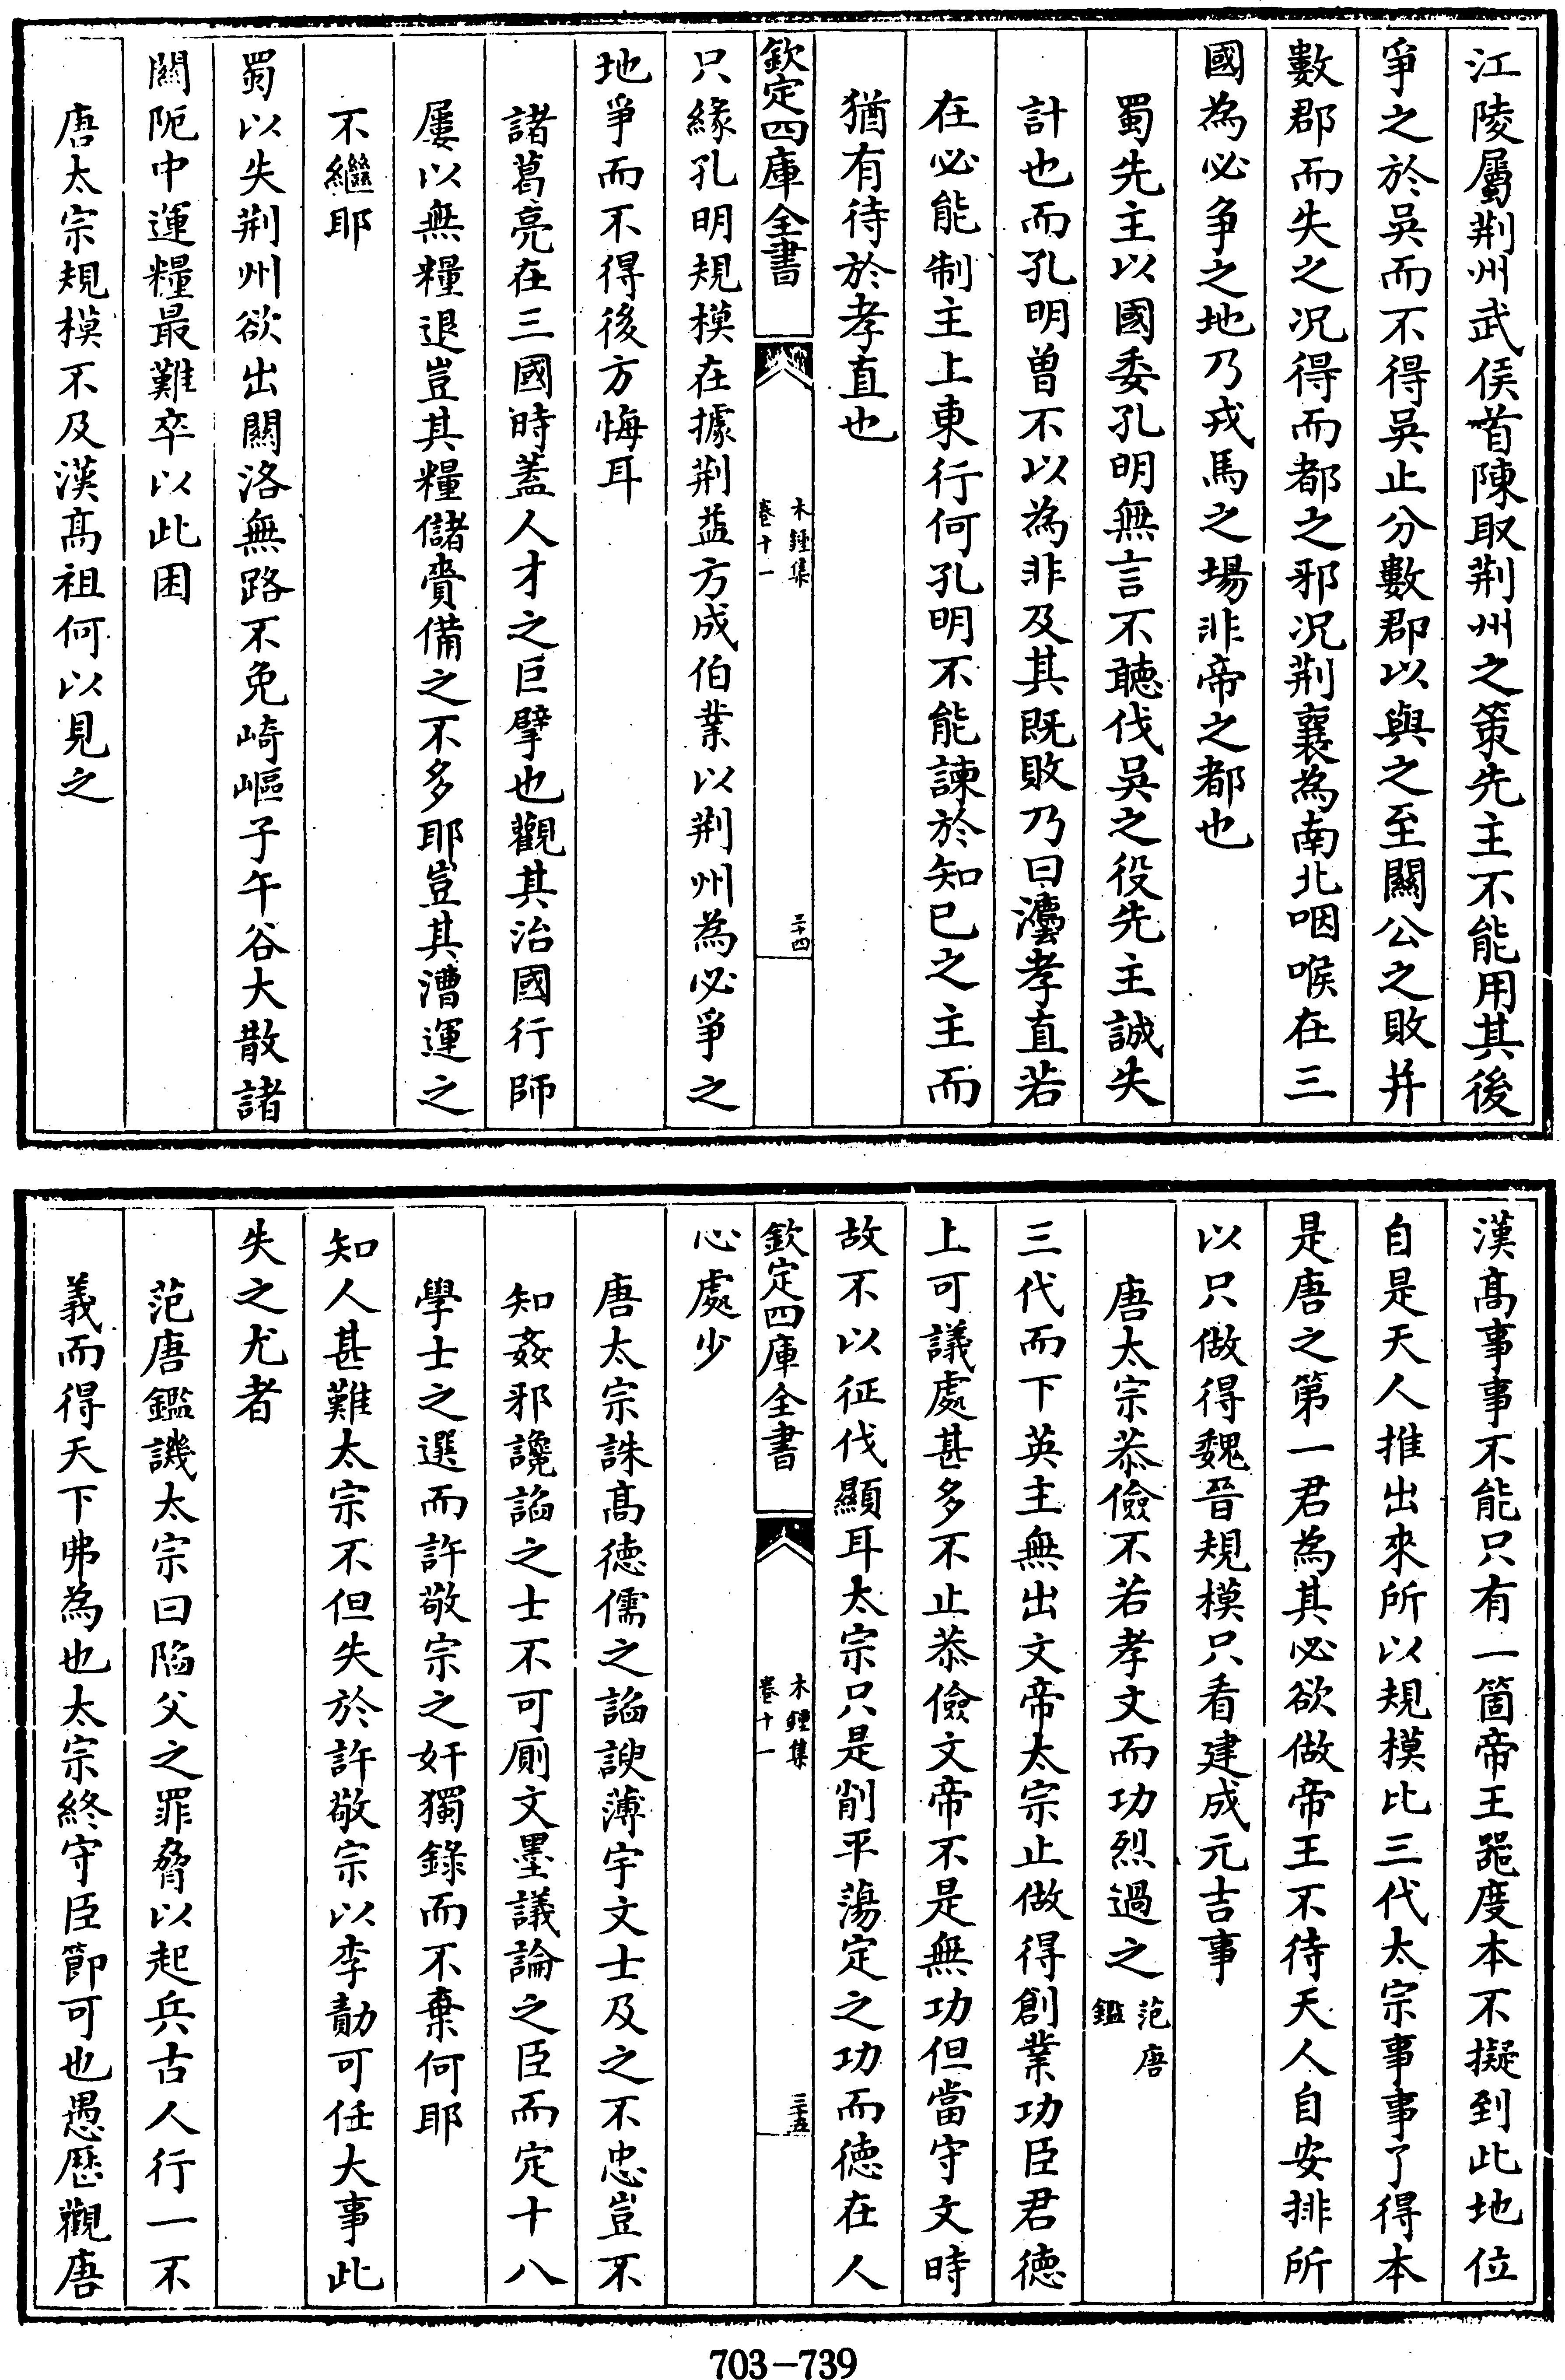 江陵屬荆州武侯首陳取荆州之策先主不能用其後
爭之於吳而不得吳止分數郡以與之至關公之敗并
數郡而失之况得而都之邪况荆襄為南北咽喉在三
國為必爭之地乃戎馬之場非帝之都也
蜀先主以國委孔明無言不聽伐吳之役先主誠失
計也而孔明曾不以為非及其既敗乃曰灋孝直若
在必能制主上東行何孔明不能諫於知已之主而
猶有待於孝直也
欽定四庫全書
木鍾集
卷十一
三十四
只緣孔明規模在據荆益方成伯業以荆州為必爭之
地爭而不得後方悔耳
諸葛亮在三國時蓋人才之巨擘也觀其治國行師
屢以無糧退豈其糧儲賫備之不多耶豈其漕運之
不繼耶
蜀以失荆州欲出關洛無路不免崎嶇子午谷大散諸
關阨中運糧最難卒以此困
唐太宗規模不及漢髙祖何以見之
漢髙事事不能只有一箇帝王噐度本不擬到此地位
自是天人推出來所以規模比三代太宗事事了得本
是唐之第一君為其必欲做帝王不待天人自安排所
以只做得魏晉規模只看建成元吉事
唐太宗恭儉不若孝文而功烈過之范唐
鑑
三代而下英主無出文帝太宗止做得創業功臣君徳
上可議處甚多不止恭儉文帝不是無功但當守文時
故不以征伐顯耳太宗只是削平蕩定之功而徳在人
欽定四庫全書
木鍾集
卷十一
三十五
心處少
唐太宗誅髙徳儒之諂諛薄宇文士及之不忠豈不
知姦邪讒諂之士不可厠文墨議論之臣而定十八
學士之選而許敬宗之奸獨錄而不棄何耶
知人甚難太宗不但失於許敬宗以李勣可任大事此
失之尤者
范唐鑑譏太宗曰陷父之罪脅以起兵古人行一不
義而得天下弗為也太宗終守臣節可也愚歴觀唐
703-739